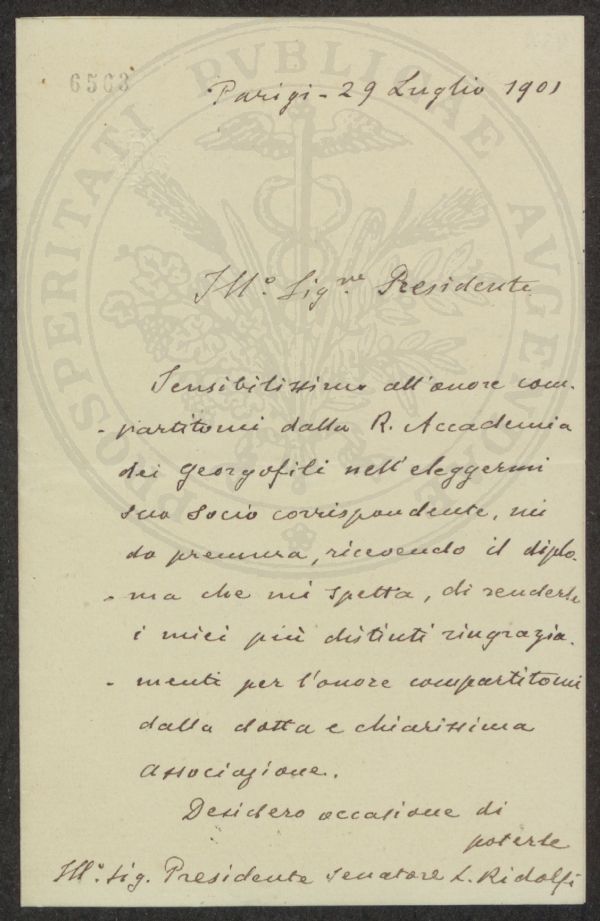 6563
Parigi - 29 Luglio 1901
PROSPERITATI PVBLICAE AVGENDAE
Ill.º Sig.re Presidente
Sensibilissimo all'onore com-
- partitomi dalla R. Accademia
dei Georgofili nell'eleggermi
suo Socio corrispondente, mi
do premura, ricevendo il diplo-
- ma che mi spetta, di renderle
i miei più distinti ringrazia-
- menti per l'onore compartitomi
dalla dotta e chiarissima
associazione.
Desidero occasione di
poterle
Ill.º Sig. Presidente Senatore L. Ridolfi